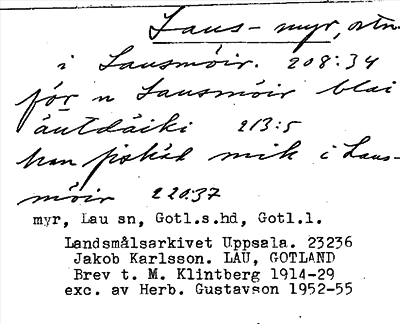 Laus-myr, ortn.
i Lausmöir. 208:34
för n Lausmöir blai
äutdäiki 213:5
han fiskäd mik i Laus-
möir 220:37
myr, Lau sn, Gotl.s.hd, Gotl.l.
Landsmålsarkivet Uppsala. 23236
Jakob Karlsson. LAU, GOTLAND
Brev t. M. Klintberg 1914-29
exc. av Herb. Gustavson 1952-55